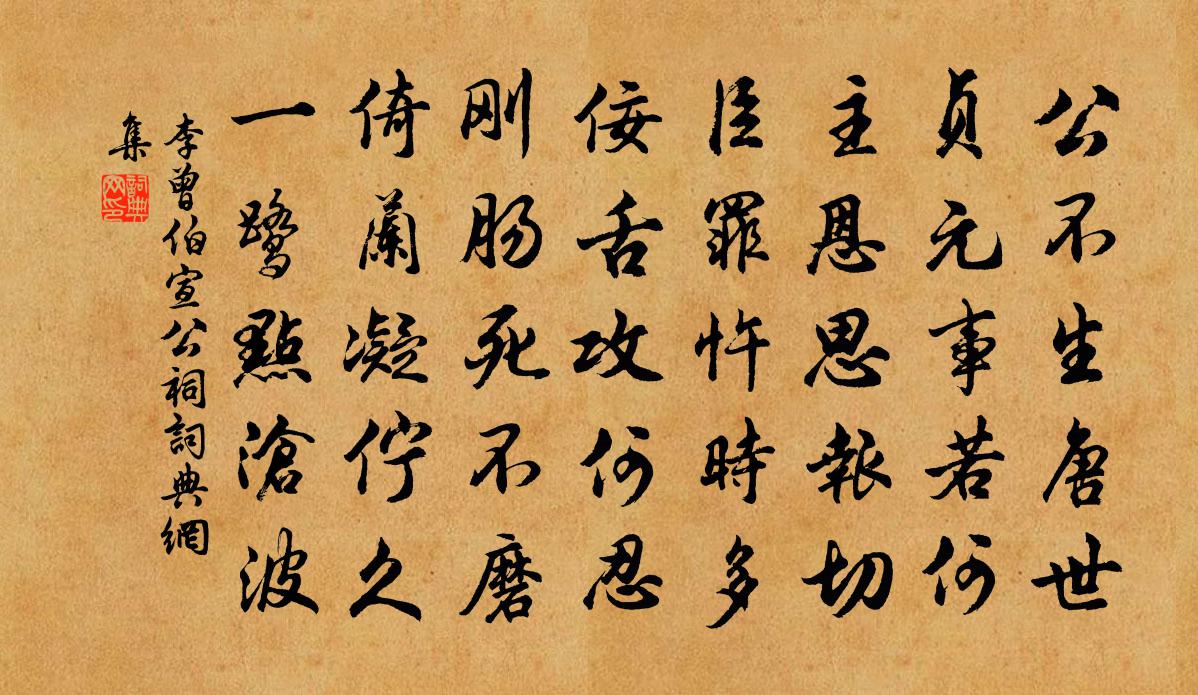 公不生唐世
贞元事若何
主恩思報切
臣罪忤時多
佞舌攻何忍
刚肠死不磨
倚蘭凝佇久
一鹭點滄波
李曾伯宣公祠詞典網
集
詞典
网印